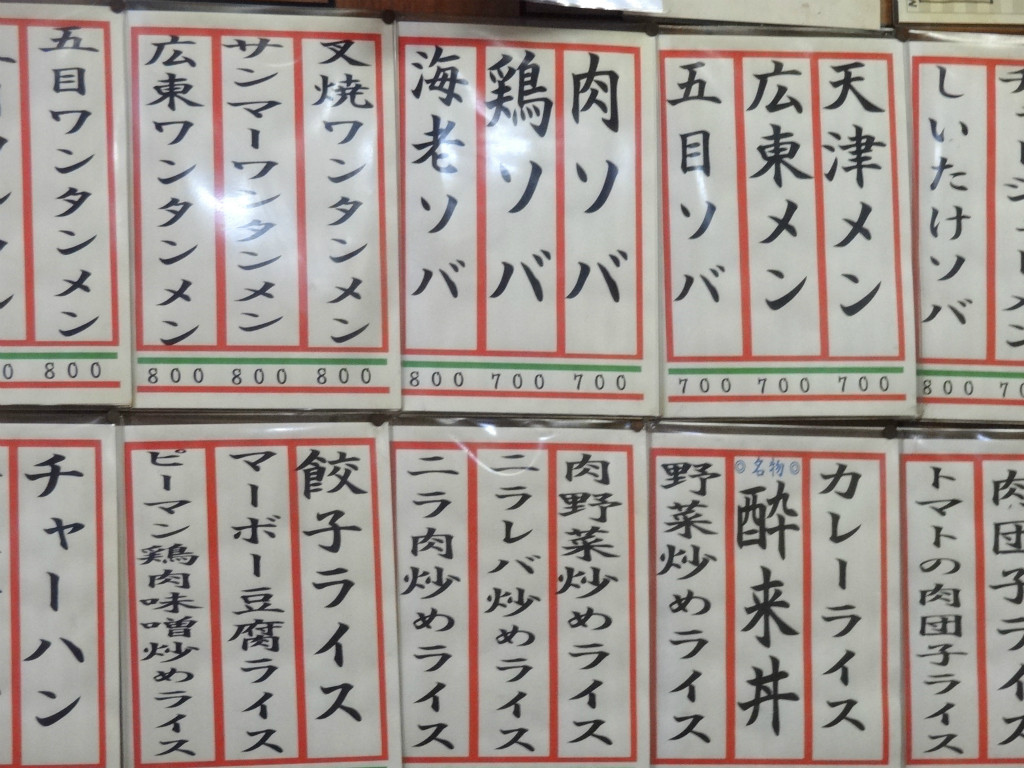 しいたけソバ
800
天津メン
700
広東メン
700
五目ソバ
700
肉ソバ
700
鶏ソバ
700
海老ソバ
800
叉焼ワンタンメン
800
サンマーワンタンメン
800
広東ワンタンメン
800
五目ワンタンメン
800
肉団子ライス
トマトの肉団子ライス
カレーライス
◎名物◎
酔来丼
野菜炒めライス
肉野菜炒めライス
ニラレバ炒めライス
ニラ肉炒めライス
餃子ライス
マーボー豆腐ライス
ピーマン鶏肉味噌炒めライス
チャーハン